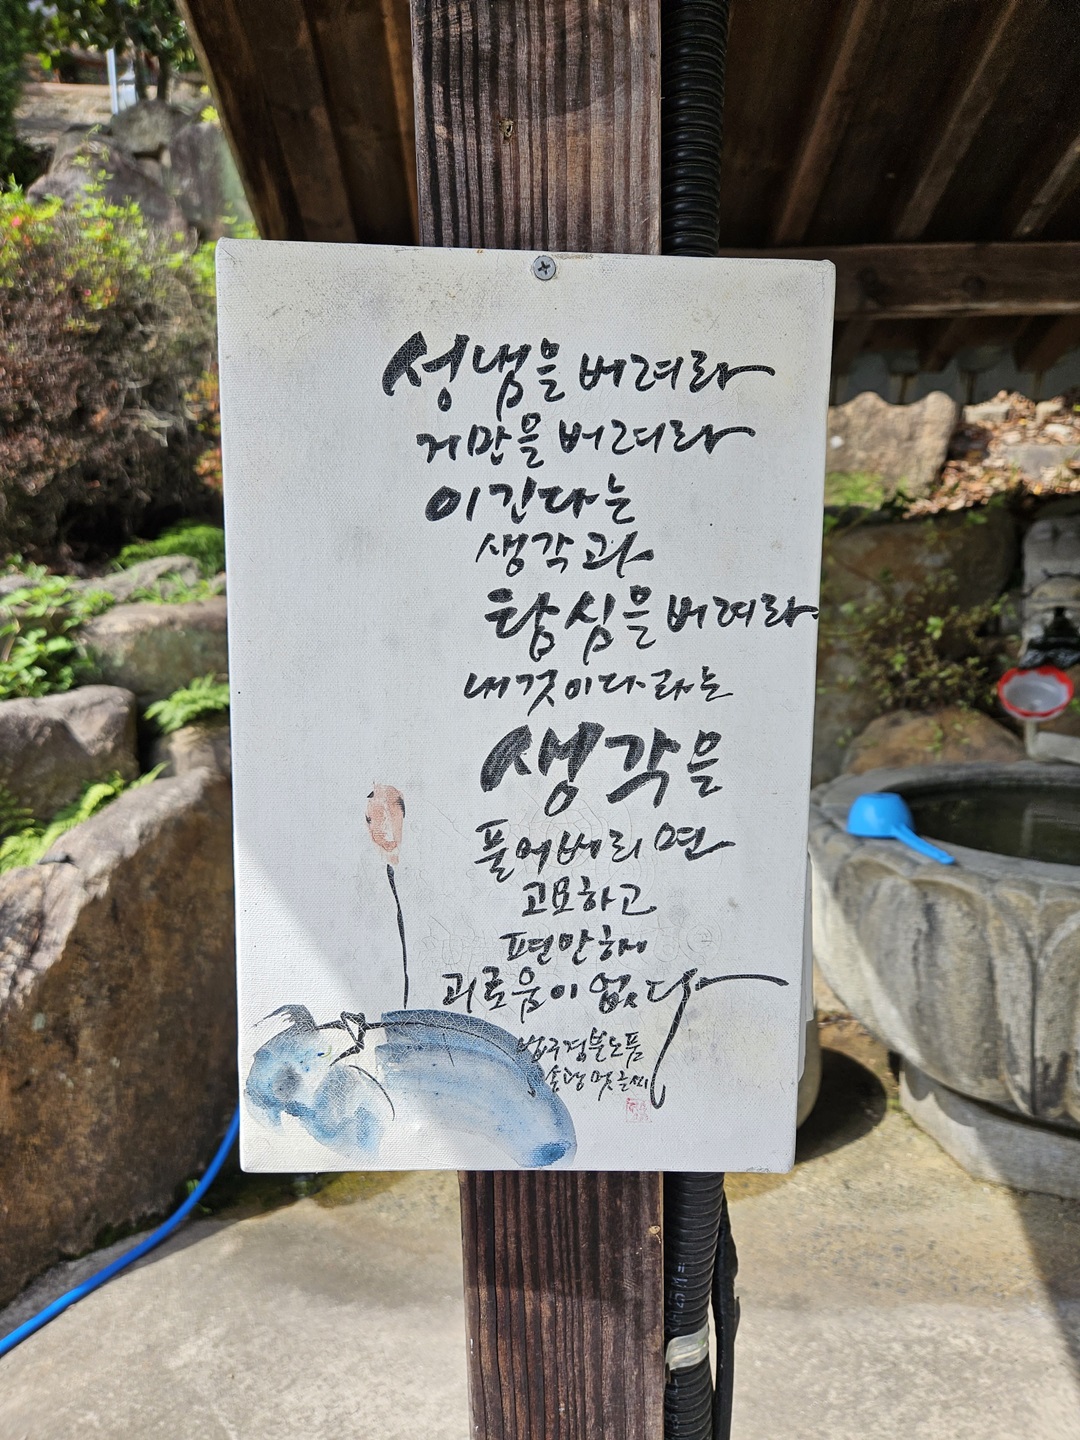 성냄을 버려라
거만을 버려라
이긴다는
생각과
탐심을 버려라
내것이다라는
생각을
풀어버리면
고요하고
편안해
괴로움이 없다
법구경분노품
송광 멋글씨